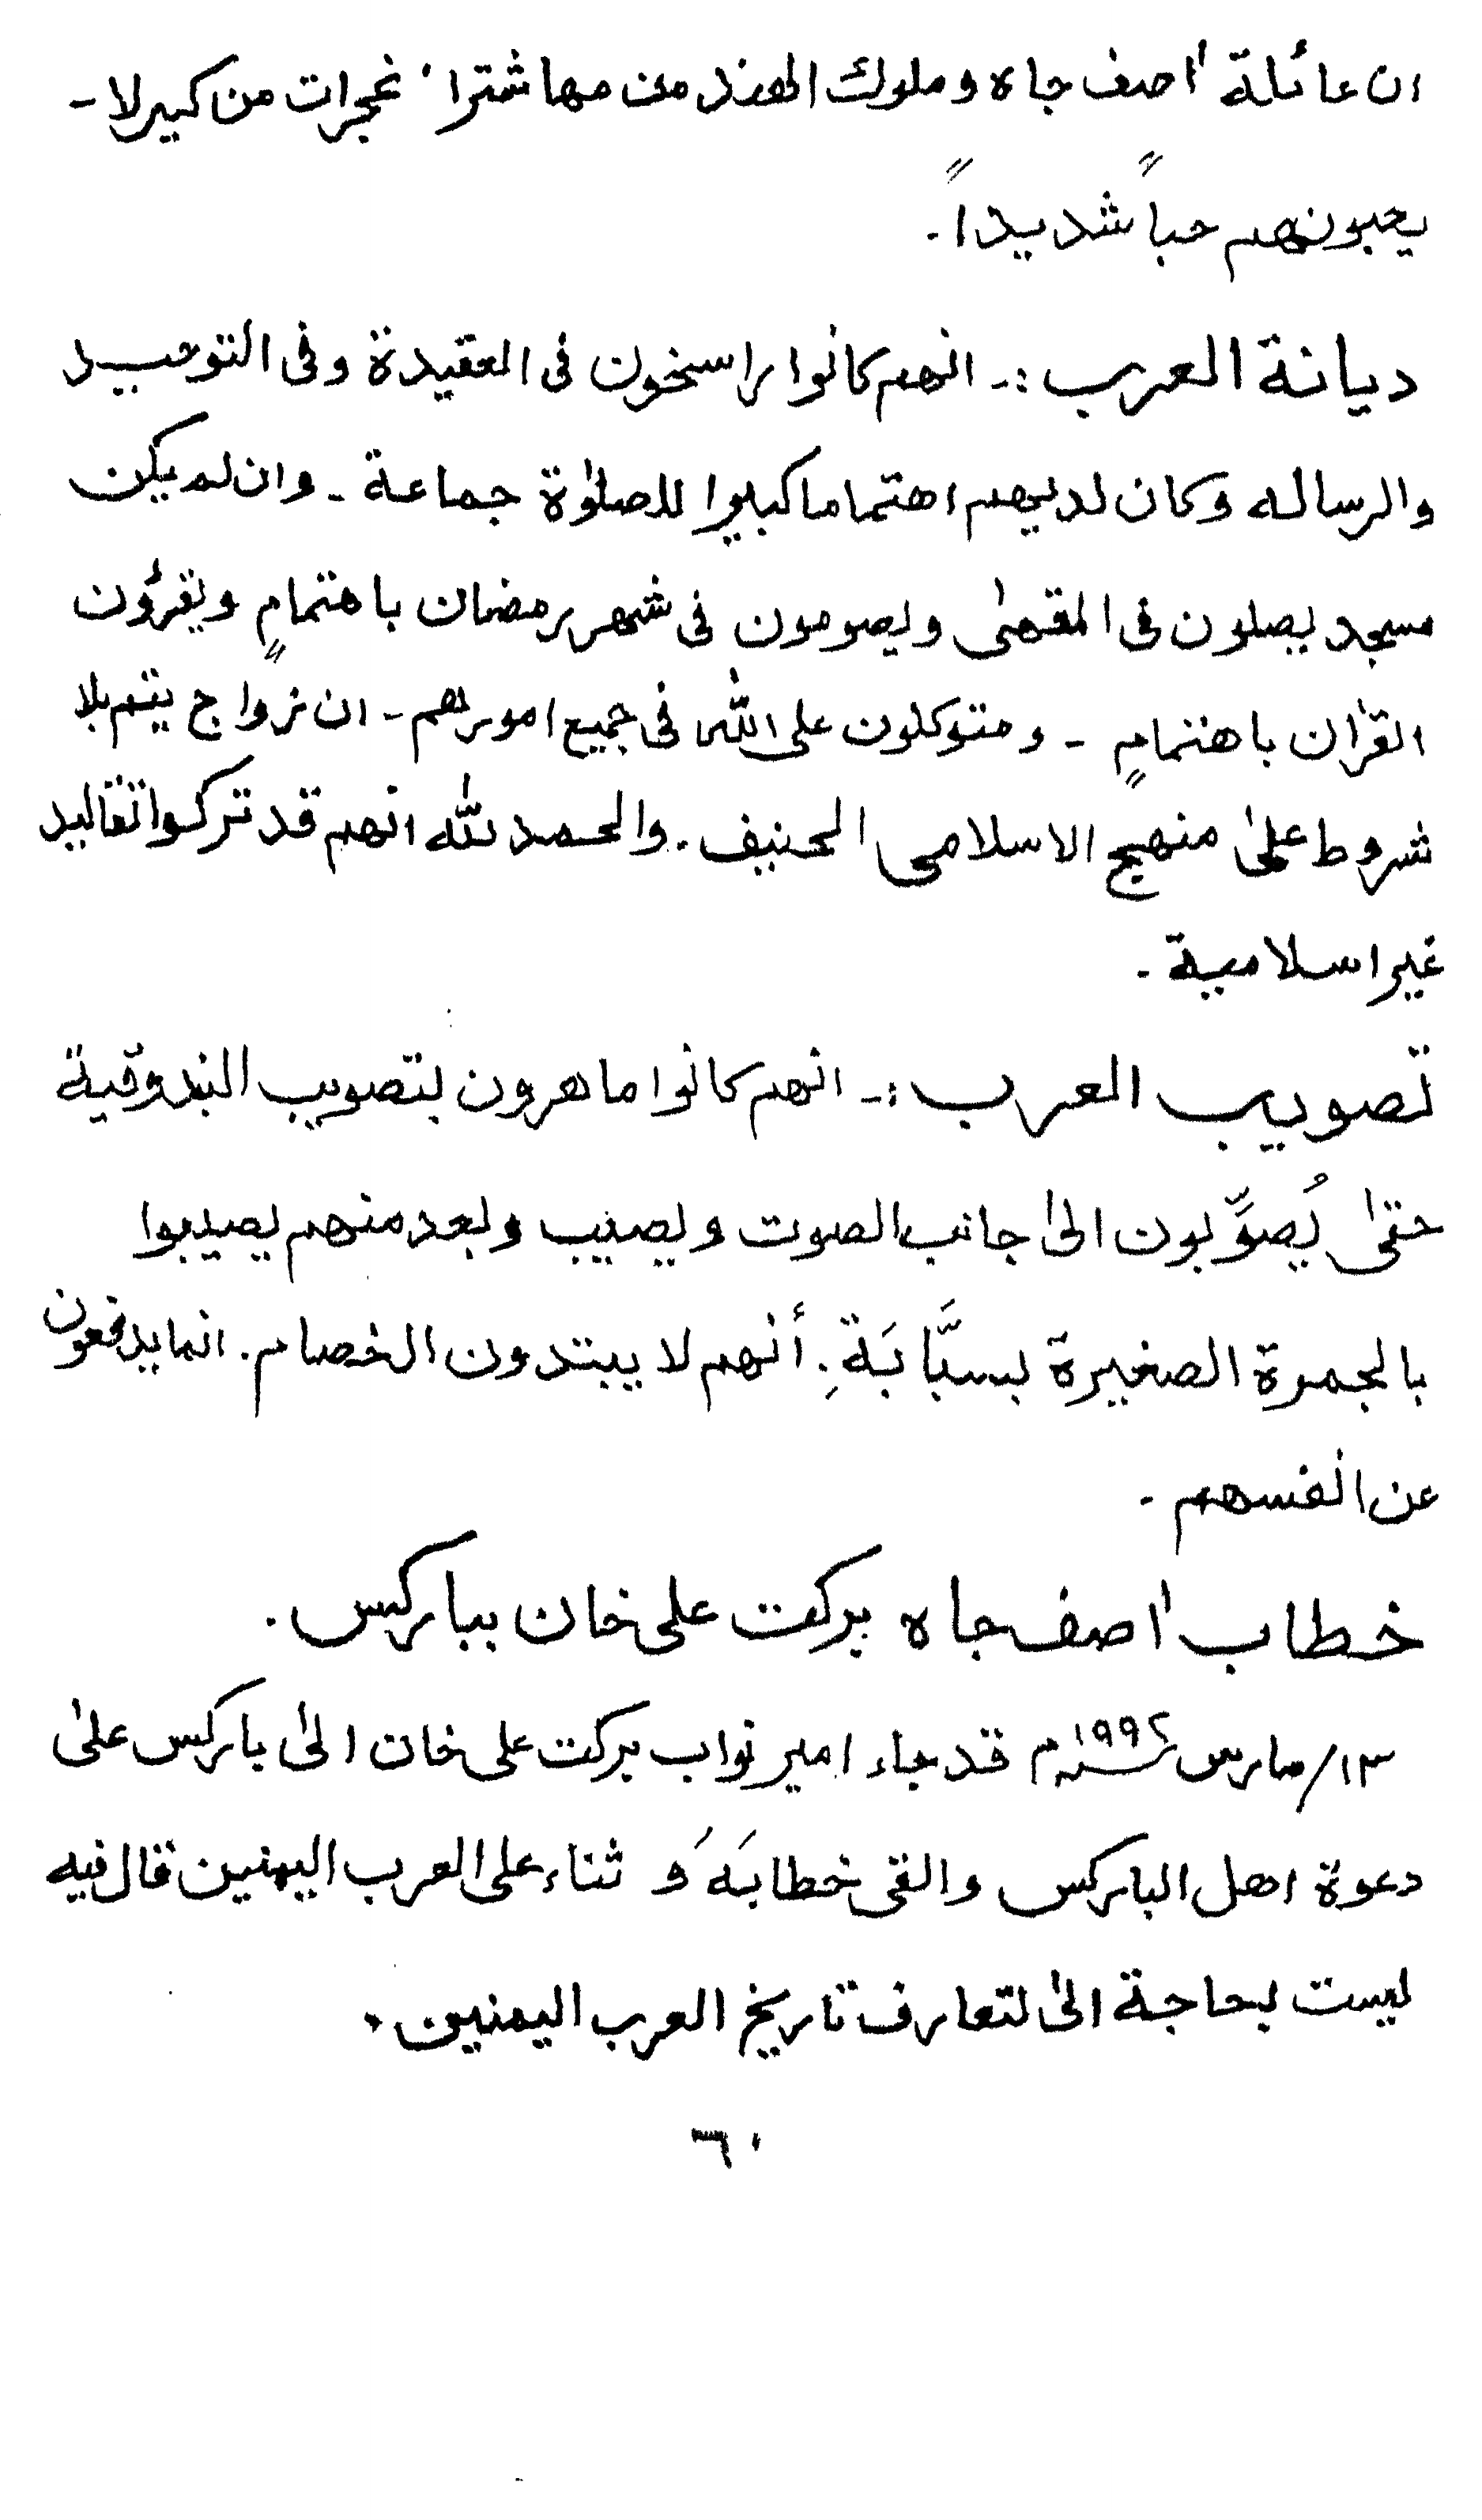 ان عائلة أصف جاه وملوك الهند من مهاشترا، غجرات من كيرلا -
يحبونهم حباً شديداً.
ديانة العرب :- انهم كانوا راسخون فى العقيدة وفى التوحيد
والرساله وكان لديهم اهتماما كبيرا للصلوٰة جماعة - وان لم يكن
مسجد يصلون فى المقهىٰ ويصومون فى شهر رمضان باهتمامٍ ويقرؤن
القرٰان باهتمامٍ - ومتوكلون على اللّٰه فى جميع امورهم - ان زواج يتم بلا
شروط علىٰ منهج الاسلامى الحنيف. والحمد للّٰه انهم قد تركوا تقاليد
غير اسلامية -
تصويب العرب :- انهم كانوا ماهرون بتصويب البندوقية
حتىٰ يُصوَّبون الىٰ جانب الصوت ويصيب وبعد منهم يصيبوا
بالجمرة الصغيرة بسبَّابَةِ. أنهم لا يبتدون الخصام. انما يدفعون
عن انفسهم -
خطاب اٰصف جاه بركت على خان بباركس.
١٣/مارس ١٩٩٢م قد جاء امير نواب بركت على خان الىٰ باركس علىٰ
دعوة اهل الباركس والقى خطابَهَ وَ ثناء على العرب اليمنين قال فيه
ليست بحاجة الىٰ لتعارف تاريخ العرب اليمنيين.
٦٠